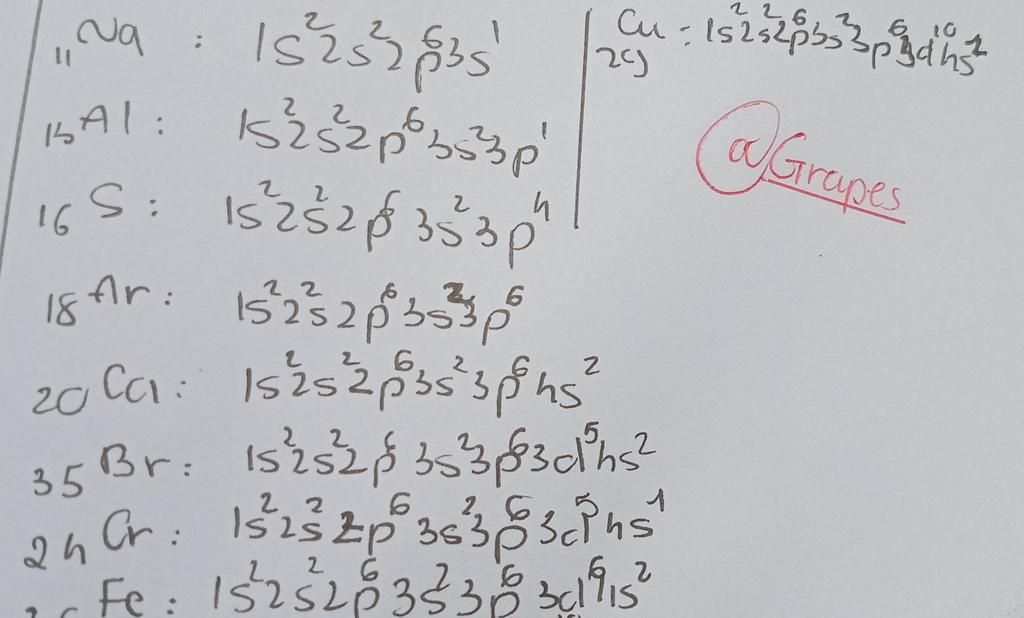 ₁₁Na : 1s²2s²2p⁶3s¹
₁₃Al : 1s²2s²2p⁶3s²3p¹
₁₆S : 1s²2s²2p⁶3s²3p⁴
₁₈Ar : 1s²2s²2p⁶3s²3p⁶
₂₀Ca : 1s²2s²2p⁶3s²3p⁶4s²
₃₅Br : 1s²2s²2p⁶3s²3p⁶3d⁵4s²
₂₄Cr : 1s²2s²2p⁶3s²3p⁶3d⁵4s¹
Fe : 1s²2s²2p⁶3s²3p⁶3d⁶4s²
₂₉Cu : 1s²2s²2p⁶3s²3p⁶3d¹⁰4s¹
@Grapes